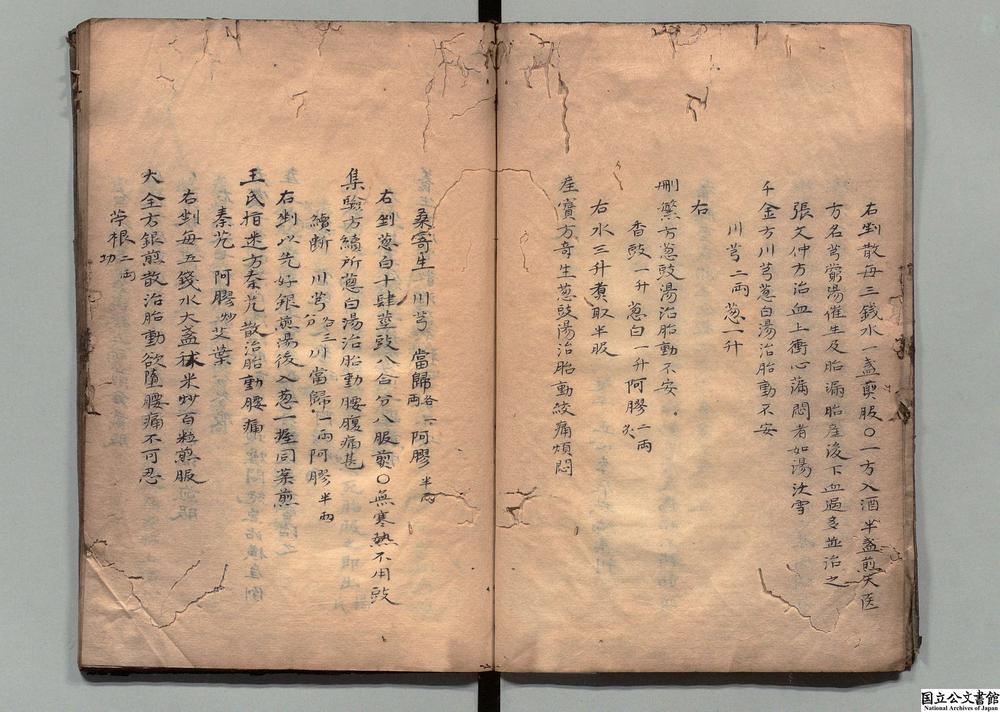 右剉散每三錢水一盞煎服〇一方入酒半盞煎天医
方名芎藭湯催生及胎漏胎産後下血過多並治之
張文仲方治血上衝心蒲悶者如湯沃雪
千金方川芎葱白湯治胎動不安
川芎二両葱一升
右
刪繁方葱豉湯治胎動不安
香豉一升 葱白一升阿膠二両炙
右水三升煮取半服
産寳方寄生葱豉湯治胎動絞痛煩悶
桑寄生 川芎 當歸各一両阿膠半両
右剉葱白十肆莖豉八合分八服煎〇無寒熱不用豉
集驗方續所葱白湯治胎動腰腹痛甚
續斷 川芎各三分川當歸一両阿膠半両
右剉以先好銀煎湯後入葱一握同藥煎
王氏指迷方秦艽散治胎動腰痛
秦艽 阿膠炒艾葉
右剉每五錢水大盞秫米炒百粒煎服
大全方銀煎散治胎動欲墮腰痛不可忍
苧根二両功
国立公文書館
National Archives of Japan